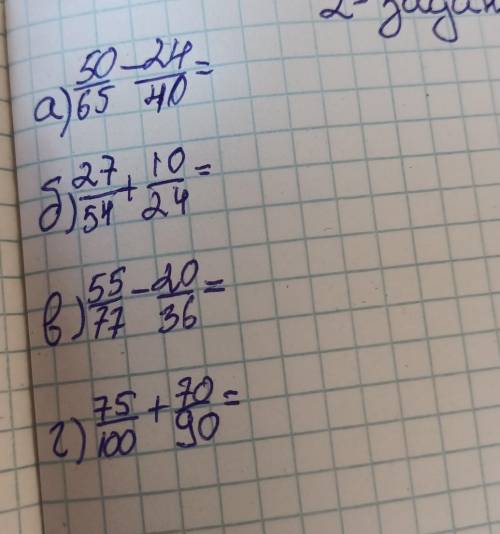 2-задан
а) 50/65 - 24/40 =
б) 27/54 + 10/24 =
в) 55/77 - 20/36 =
г) 75/100 + 70/90 =